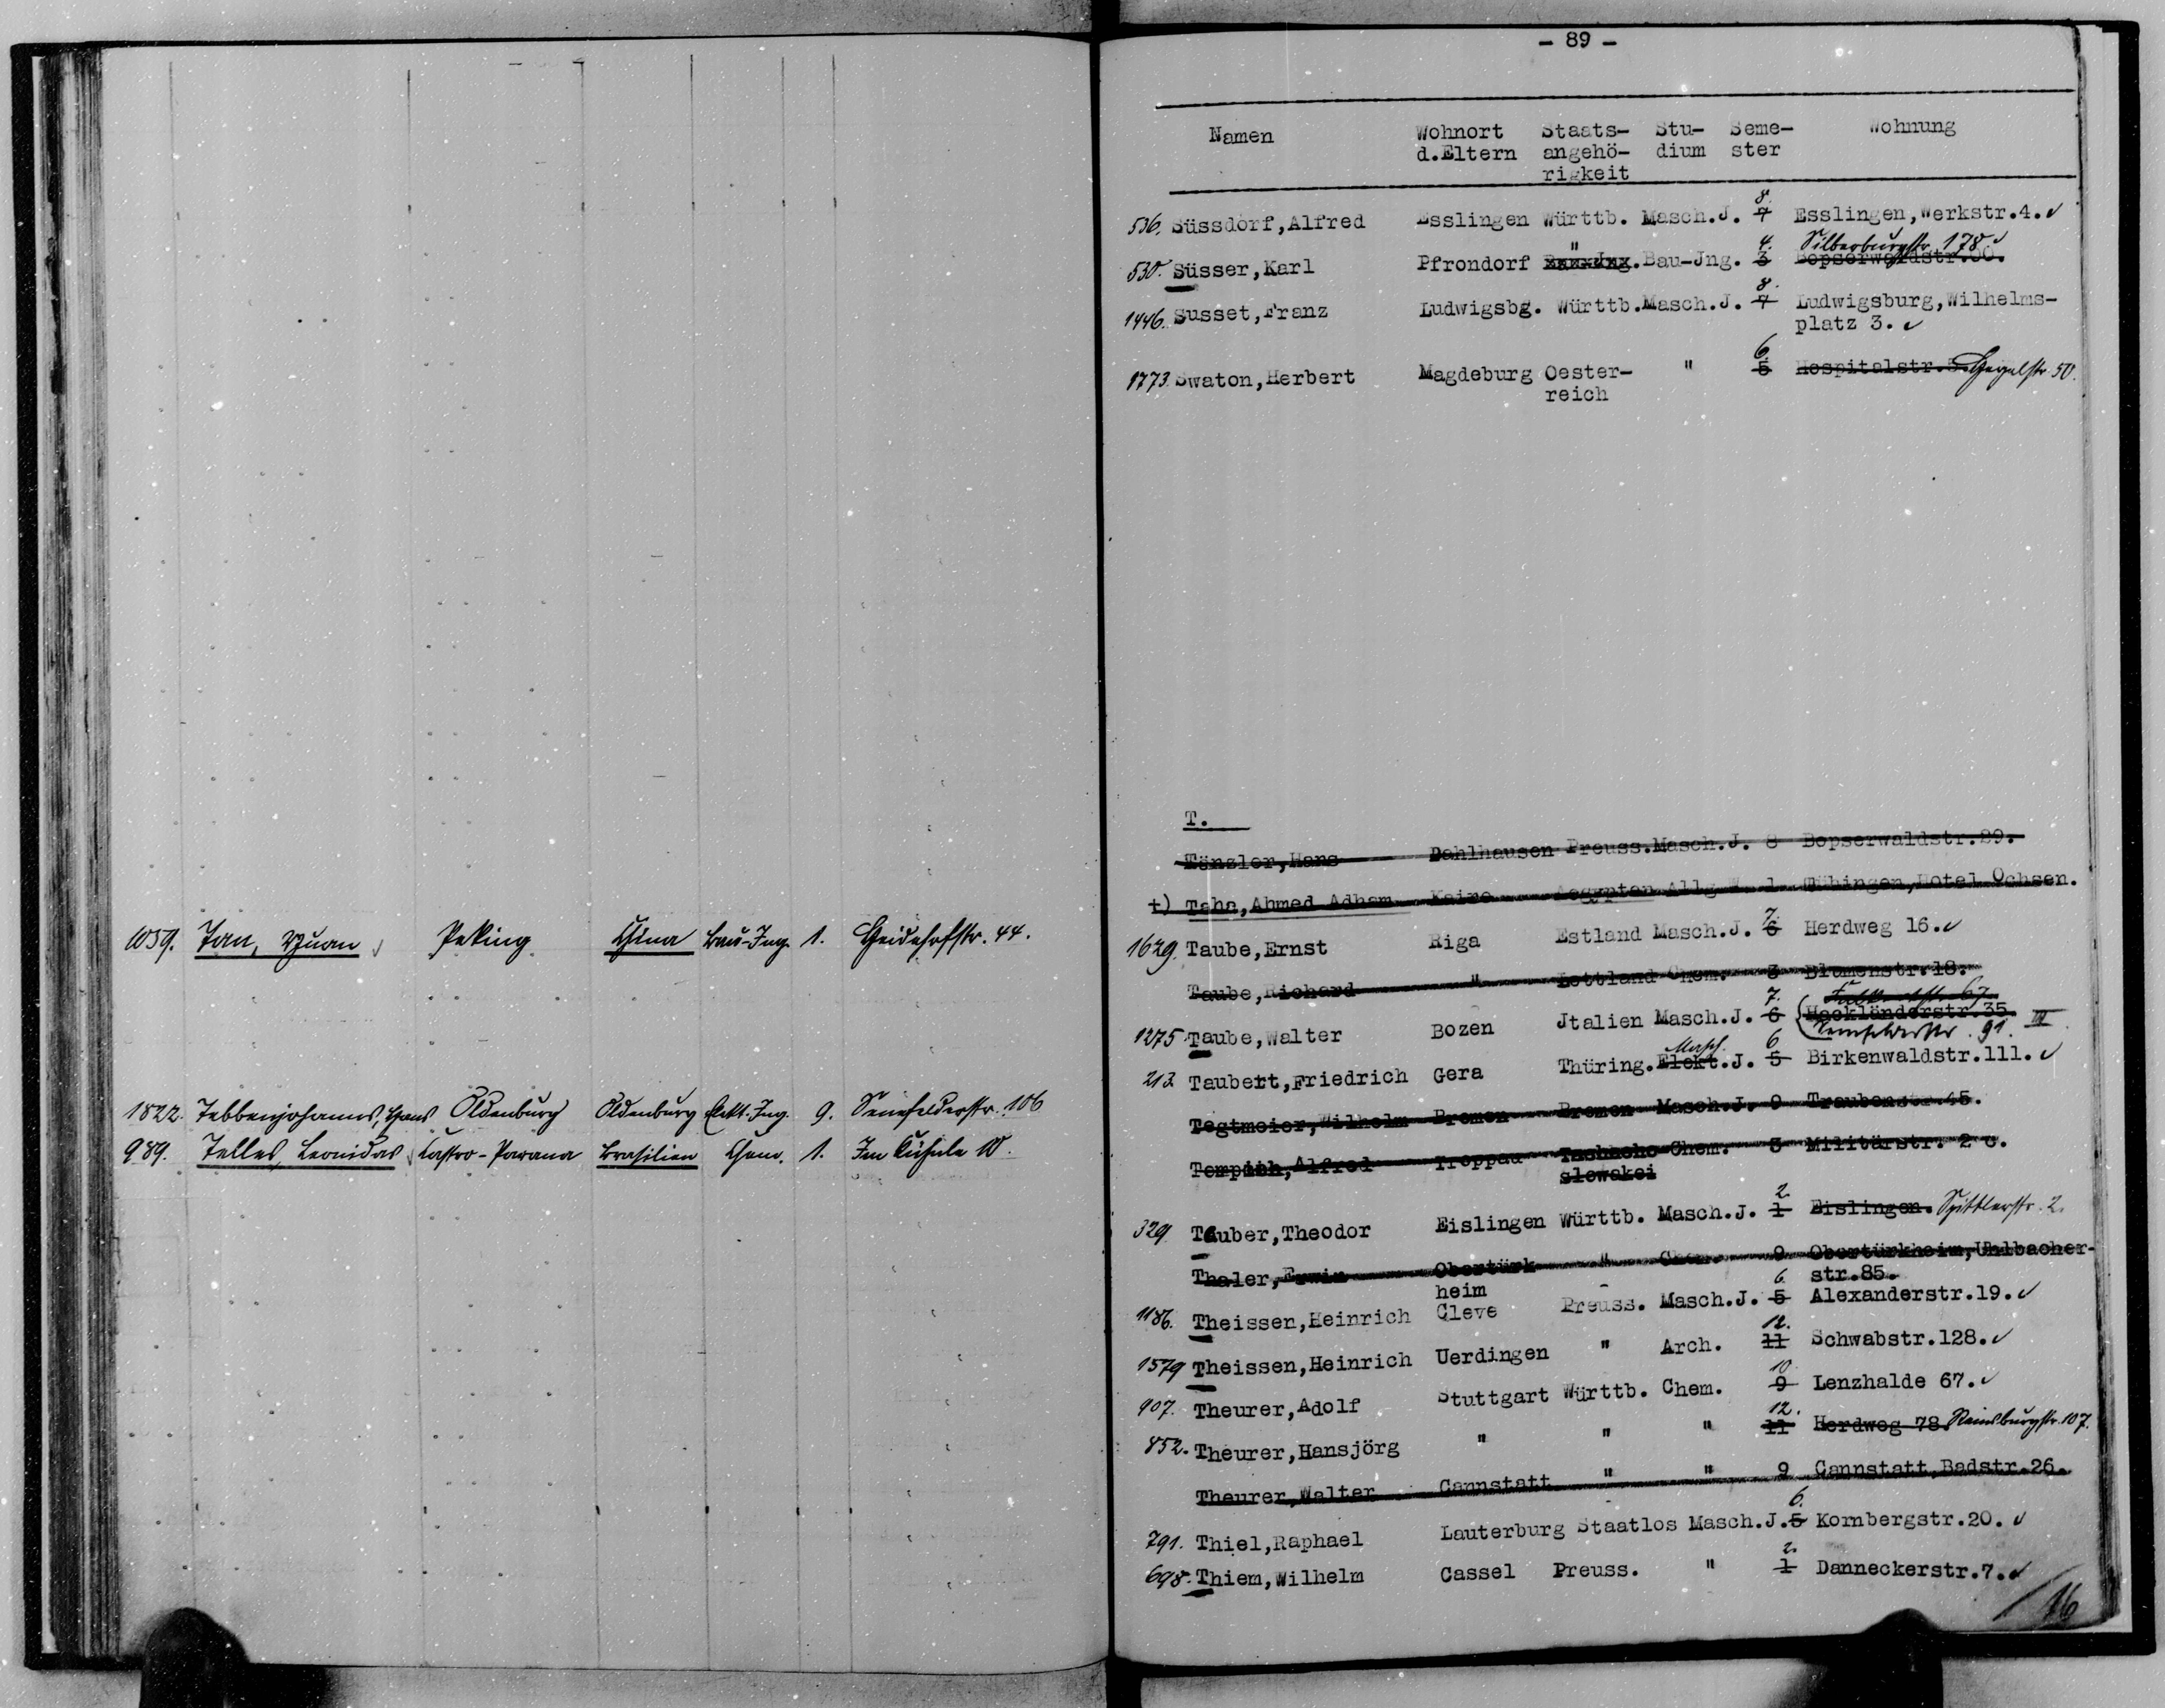 1059. Tan, Yuan Peking China Bau-Ing. 1. Heidehofstr. 44.
1822. Tebbenjohanns, Hans Oldenburg Oldenburg Elekt.-Ing. 9. Senefelderstr. 106
989. Telles, Leonidas Castro-Parana Brasilien Chem. 1. Im 10.
- 89 -
Namen Wohnort Staats- Stu- Seme- Wohnung
d.Eltern angehö- dium ster
rigkeit
8.
536. Süssdorf,Alfred Esslingen Württb. Masch.J. 7 Esslingen,Werkstr.4.
" 4. Silberburgstr. 178.
530. Süsser,Karl Pfrondorf Bau-Jng. 3 Bopserwaldstr.
8.
1446. Susset,Franz Ludwigsbg. Württb.Masch.J. 7 Ludwigsburg,Wilhelms-
platz 3.
6.
1773. Swaton,Herbert Magdeburg Oester- " 5 Hospitalstr.5. Hegelstr. 50.
reich
T.
Tänzler,Hans Dahlhausen Preuss.Masch.J. 8 Bopserwaldstr.29.
+) Taha,Ahmed Adham Kairo Aegypten Allg.W. 1 Tübingen,Hotel Ochsen.
7.
1629. Taube,Ernst Riga Estland Masch.J. 6 Herdweg 16.
Taube,Richard " Lettland Chem. 3 Blumenstr.18.
7. 67.
1275. Taube,Walter Bozen Jtalien Masch.J. 6 Hackländerstr.35.
91. III.
Masch. 6
213. Taubert,Friedrich Gera Thüring.Elekt.J. 5 Birkenwaldstr.111.
Tegtmeier,Wilhelm Bremen Bremen Masch.J. 9 Traubenstr.45.
Alfred Troppau Tschecho Chem. 3 Militärstr. 2 c.
slowakei
2.
329. Tauber,Theodor Eislingen Württb. Masch.J. 1 Eislingen. Spittlerstr. 2.
Thaler,Erwin Obertürk- " Chem. 9 Obertürkheim,Uhlbacher-
heim str.85.
6.
1186. Theissen,Heinrich Cleve Preuss. Masch.J. 5 Alexanderstr.19.
12.
1579 Theissen,Heinrich Uerdingen " Arch. 11 Schwabstr.128.
10.
907. Theurer,Adolf Stuttgart Württb. Chem. 9 Lenzhalde 67.
12.
852. Theurer,Hansjörg " " " 11 Herdweg 78. Reinsburgstr. 107.
Theurer,Walter Cannstatt " " 9 Cannstatt,Badstr.26.
6.
791. Thiel,Raphael Lauterburg Staatlos Masch.J.5 Kornbergstr.20.
2.
698. Thiem,Wilhelm Cassel Preuss. " 1 Danneckerstr.7.
16